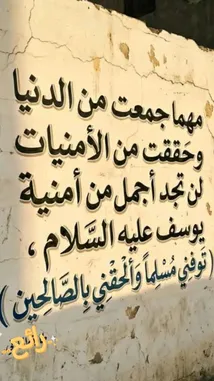 مهما جمعت من الدنيا
وحَققت من الأمنيات
لن تجد أجمل من أمنية
يوسف عليه السَّلام ،
( تَوفني مُسْلِماً وَألحقْني بِالصَّالحِين )
رائع